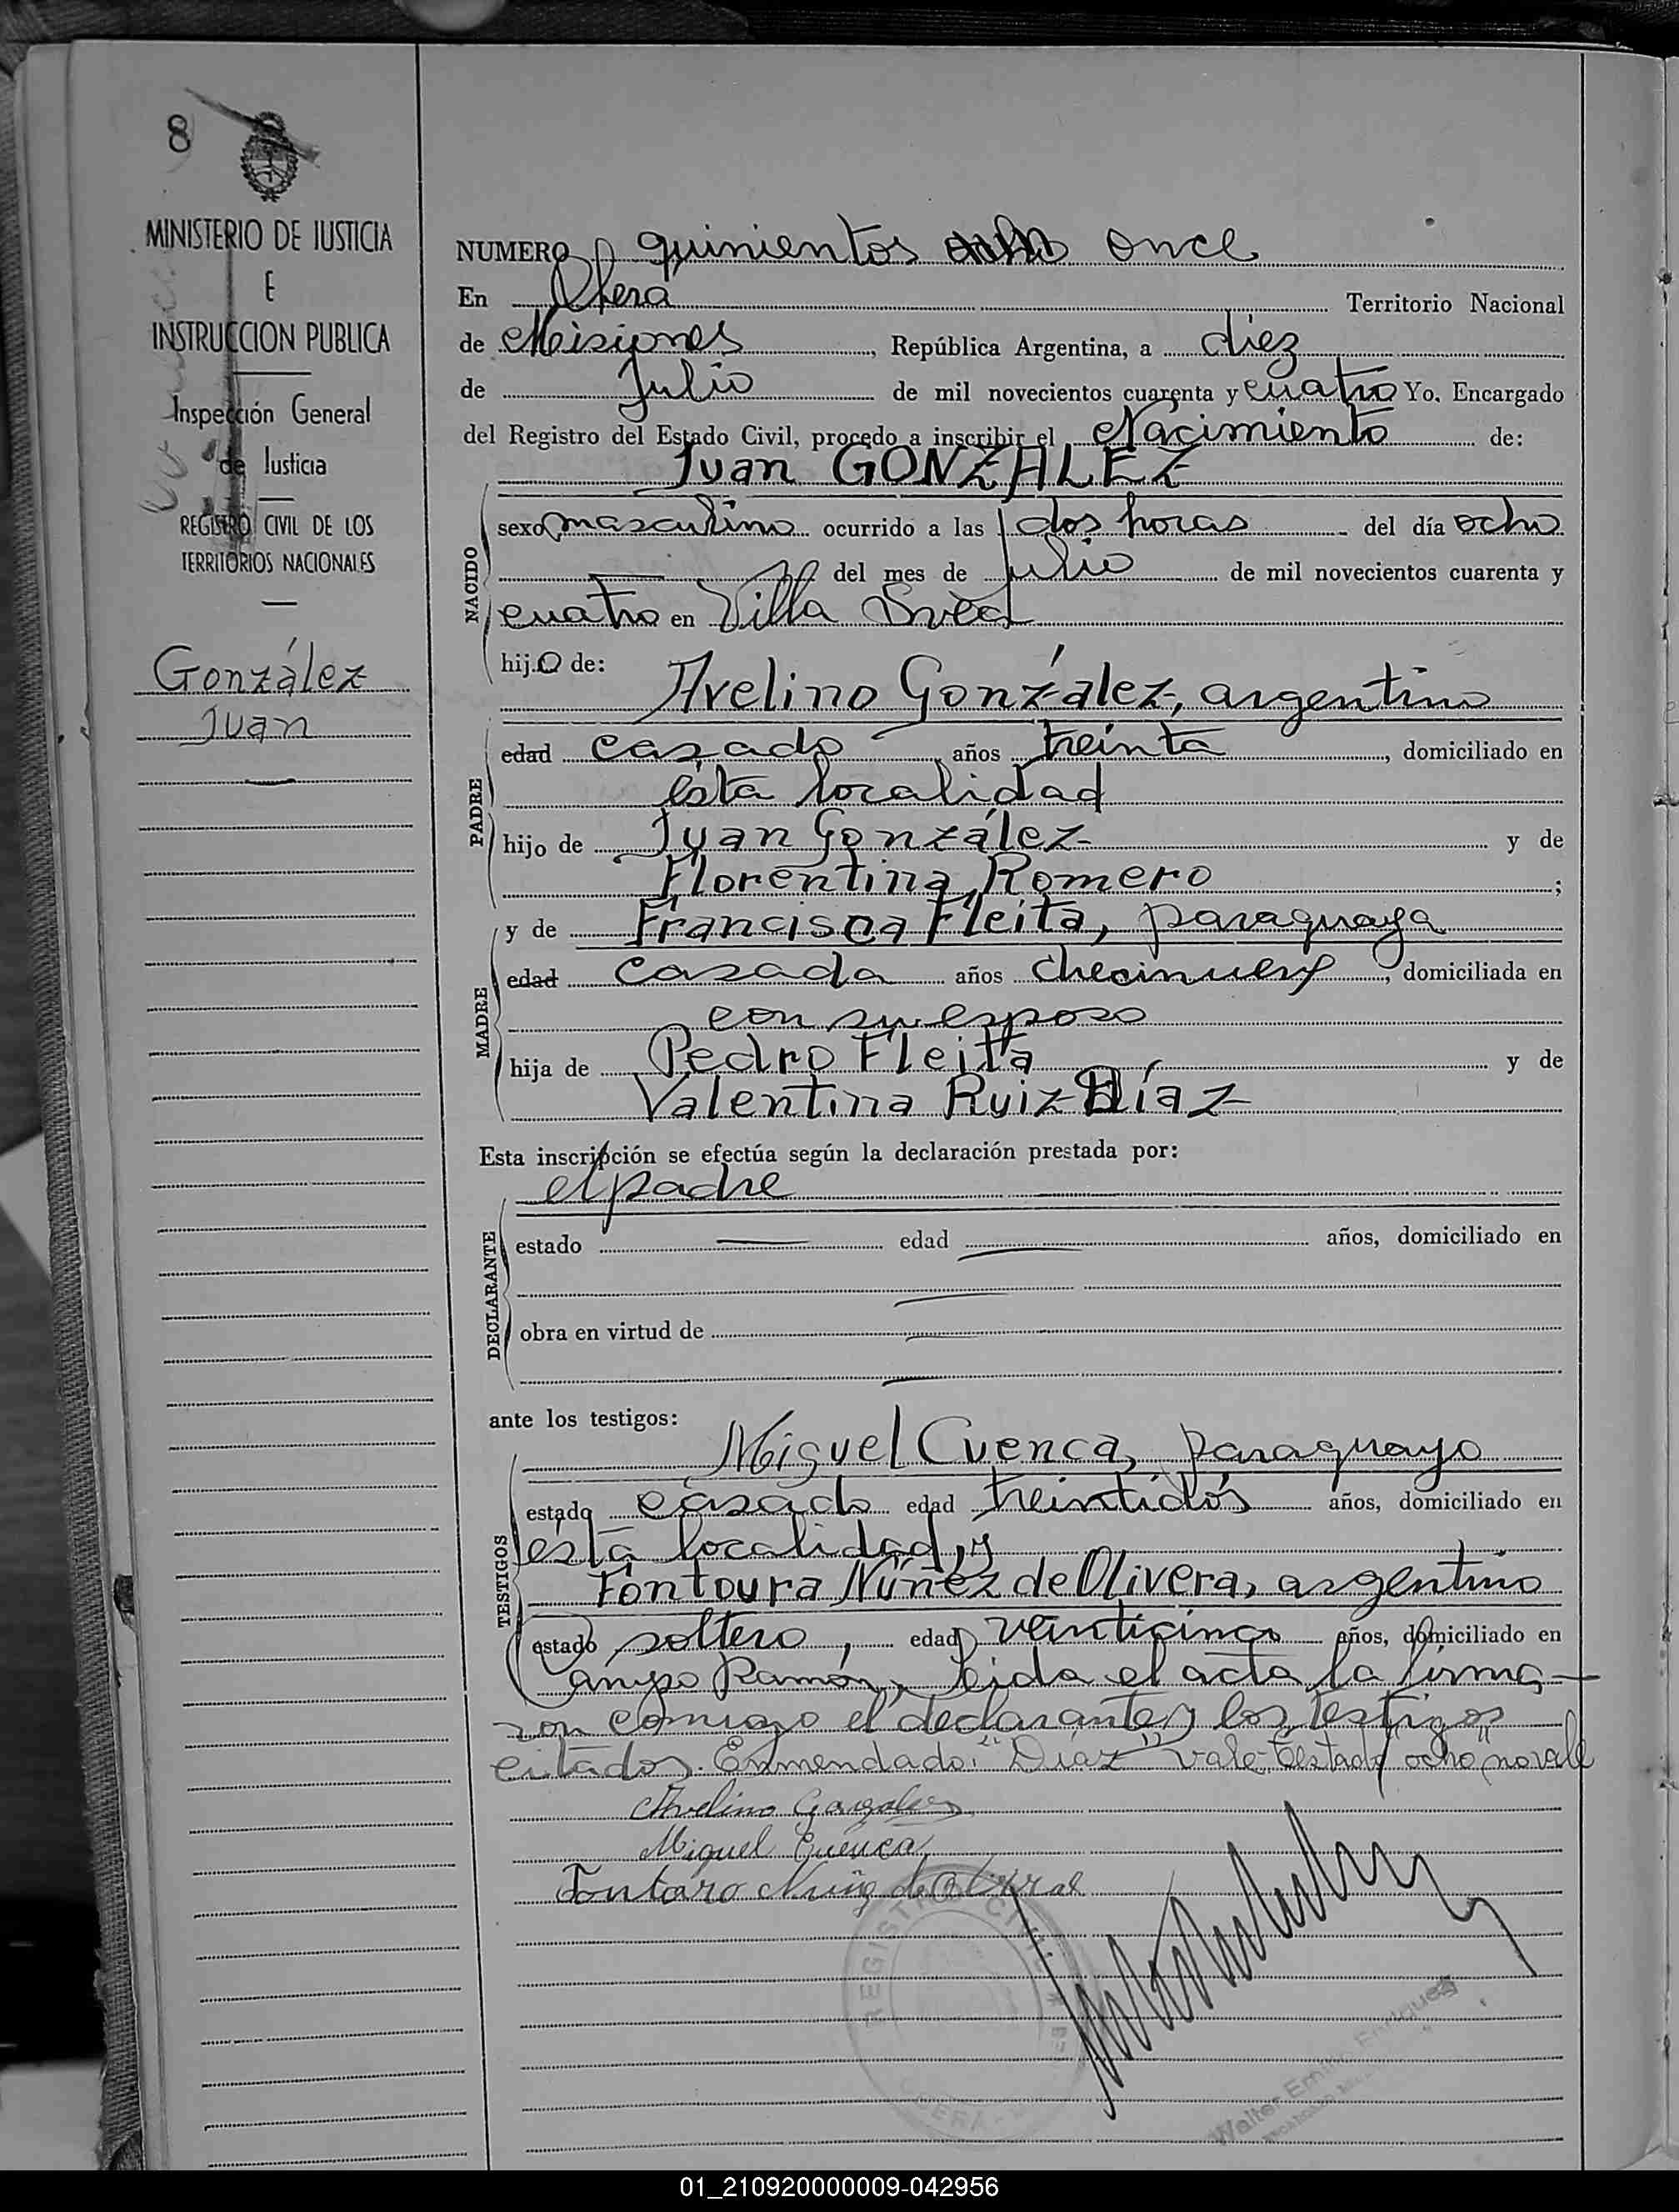 8
MINISTERIO DE JUSTICIA
E
INSTRUCCION PUBLICA
Inspección General
de Justicia
REGISTRO CIVIL DE LOS
TERRITORIOS NACIONALES
González
Juan
NUMERO quinientos ocho once
En Oberá Territorio Nacional
de Misiones, República Argentina, a diez
de Julio de mil novecientos cuarenta y cuatro Yo, Encargado
del Registro del Estado Civil, procedo a inscribir el Nacimiento de:
Juan GONZALEZ
NACIDO
sexo masculino ocurrido a las dos horas del día ocho
del mes de julio de mil novecientos cuarenta y
cuatro en Villa Svea
hijo de:
Avelino González, argentino
PADRE
edad casado años treinta, domiciliado en
esta localidad
hijo de Juan González y de
Florentina Romero;
y de Francisca Fleita, paraguaya
MADRE
edad casada años diecinueve, domiciliada en
con su esposo
hija de Pedro Fleita y de
Valentina Ruiz Díaz
Esta inscripción se efectúa según la declaración prestada por:
el padre
DECLARANTE
estado edad años, domiciliado en
obra en virtud de
ante los testigos:
Miguel Cuenca, paraguayo
TESTIGOS
estado casado edad treintidós años, domiciliado en
esta localidad, y
Fontoura Núñez de Olivera, argentino
estado soltero, edad veinticinco años, domiciliado en
Campo Ramón, leida el acta la firma-
ron conmigo el declarante y los testigos
citados. Enmendado: "Díaz" vale. Testado "ocho" no vale
Avelino Gonzales
Miguel Cuenca
REGISTRO CIVIL
OBERA
Walter Emilio Enriquez
01_210920000009-042956